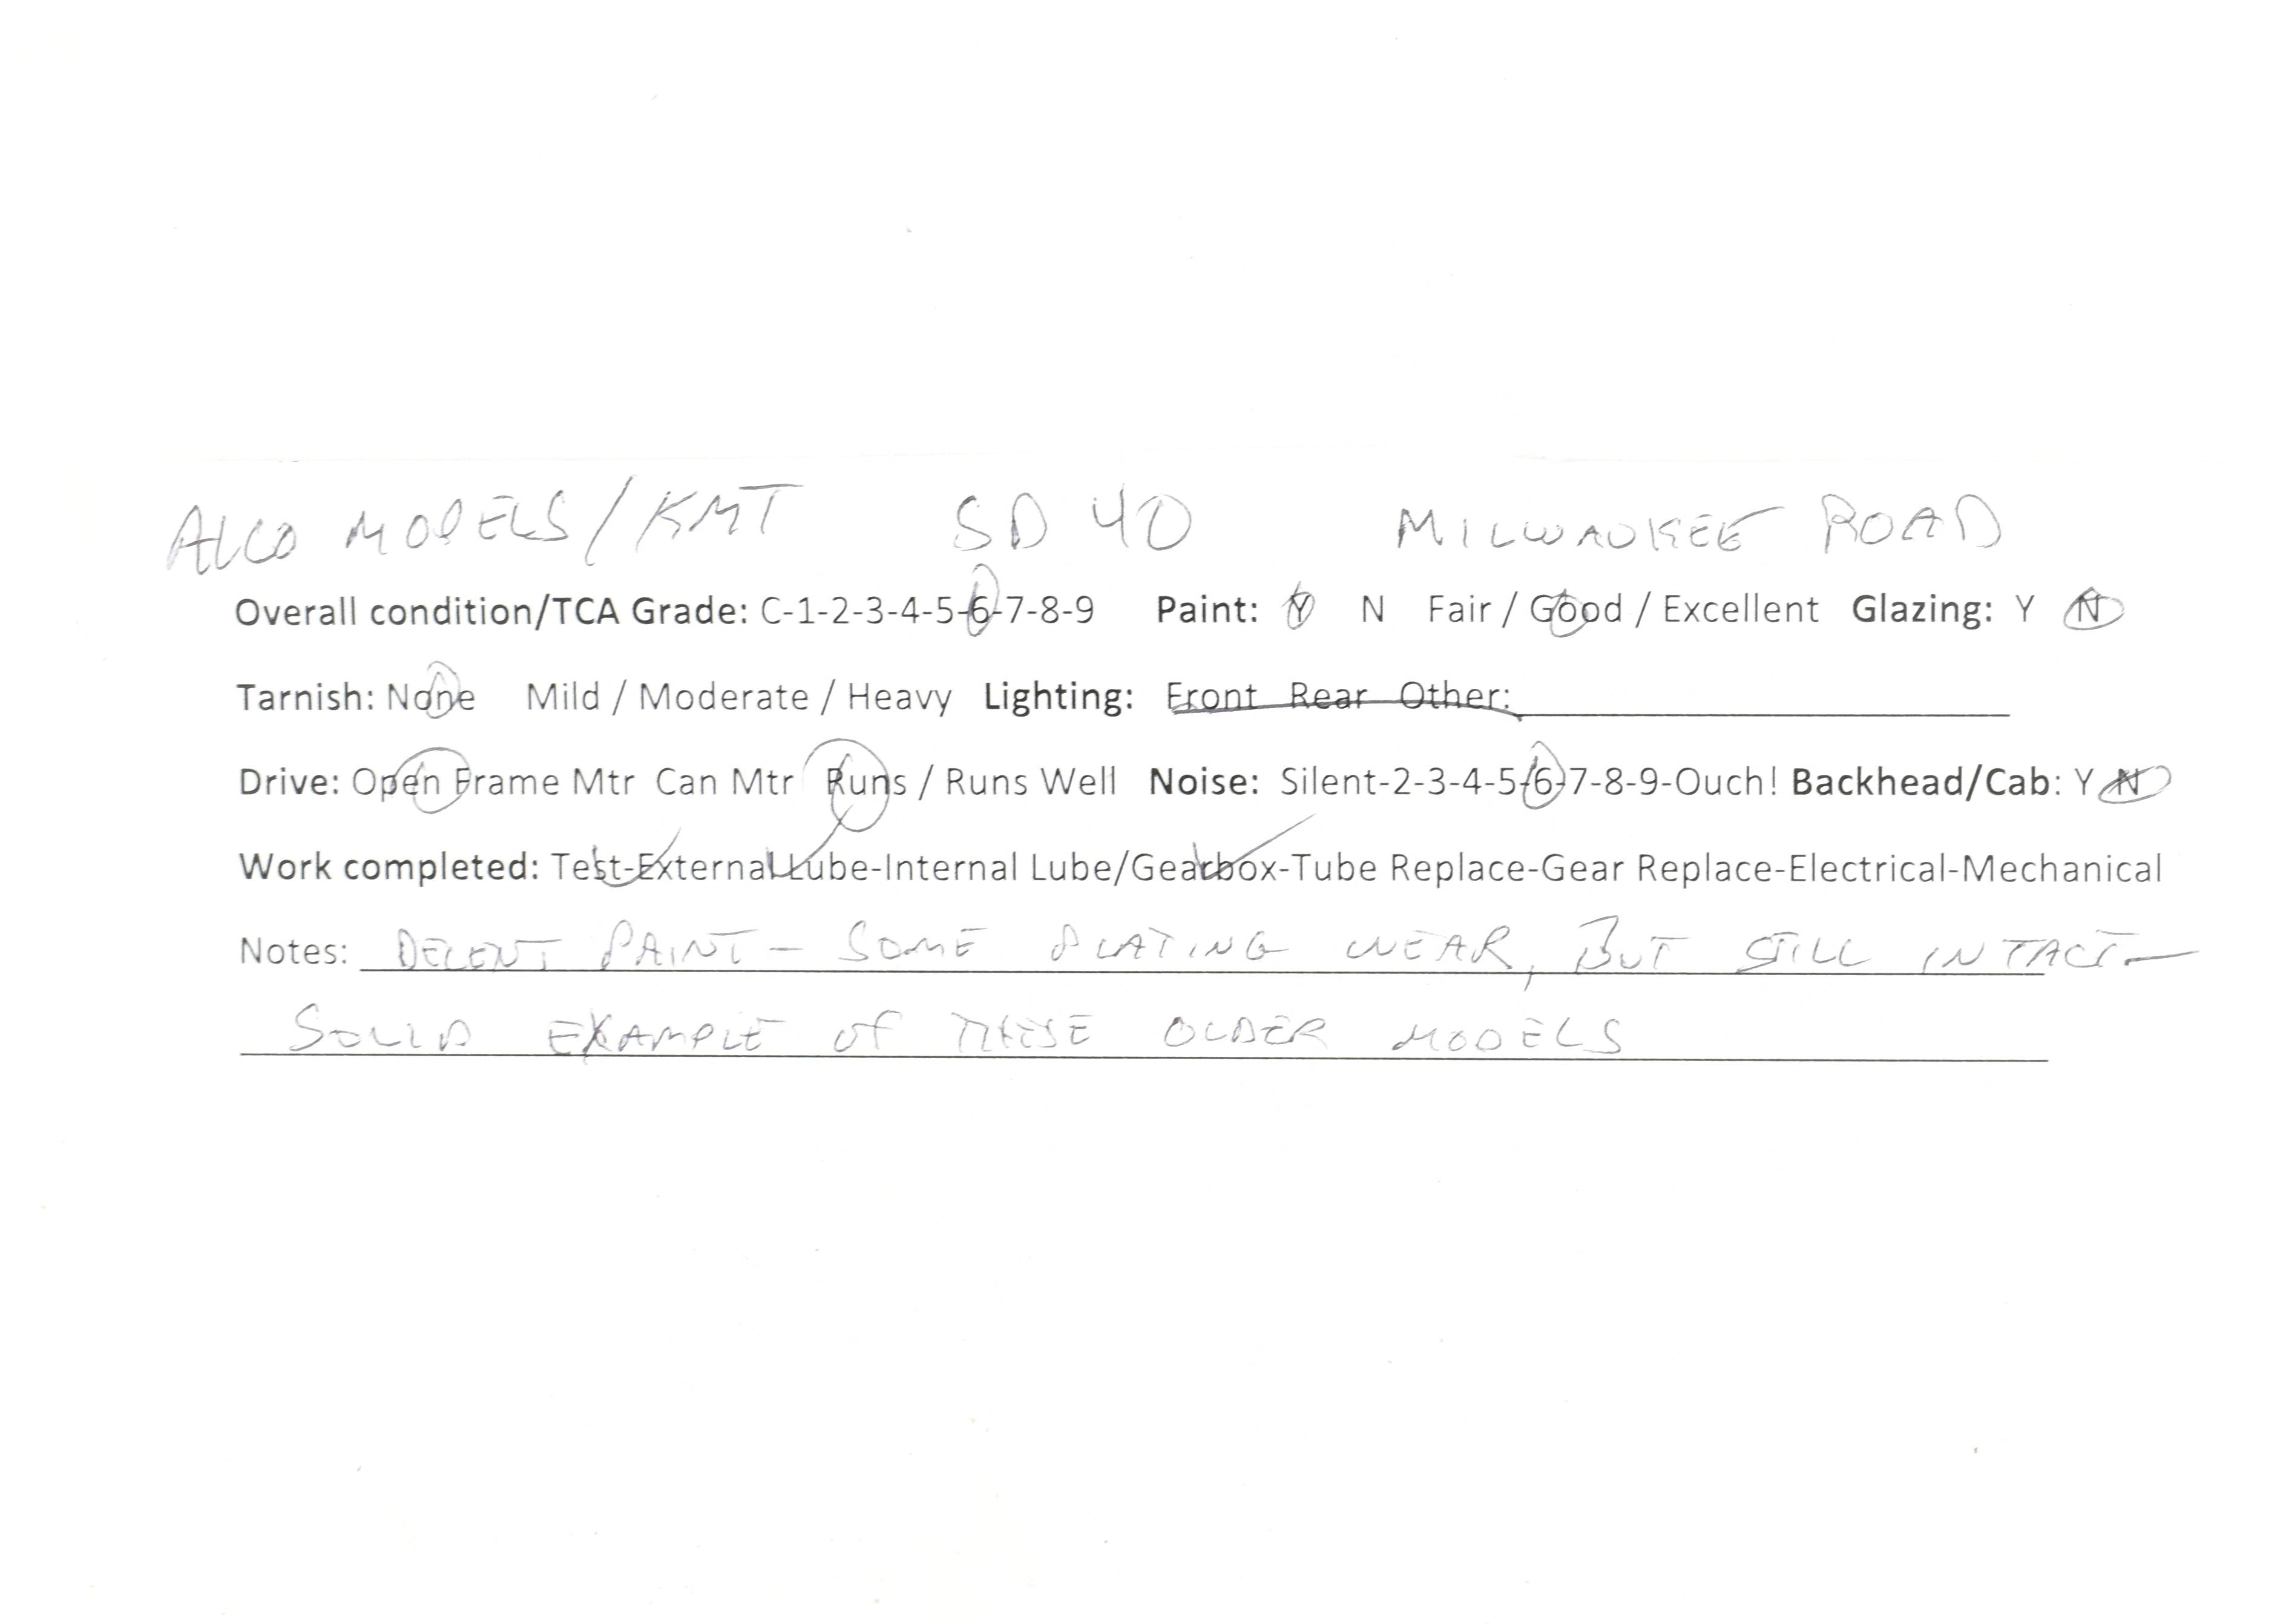 ALCO MODELS/KMT SD 40 MILWAUKEE ROAD
Overall condition/TCA Grade: C-1-2-3-4-5-6-7-8-9 Paint: Y N Fair / Good / Excellent Glazing: Y N
Tarnish: None Mild / Moderate / Heavy Lighting: Front Rear Other:
Drive: Open Frame Mtr Can Mtr Runs / Runs Well Noise: Silent-2-3-4-5-6-7-8-9-Ouch! Backhead/Cab: Y N
Work completed: Test-External Lube-Internal Lube/Gearbox-Tube Replace-Gear Replace-Electrical-Mechanical
Notes: DECENT PAINT - SOME PLATING WEAR, BUT STILL INTACT-
SOLID EXAMPLE OF THESE OLDER MODELS